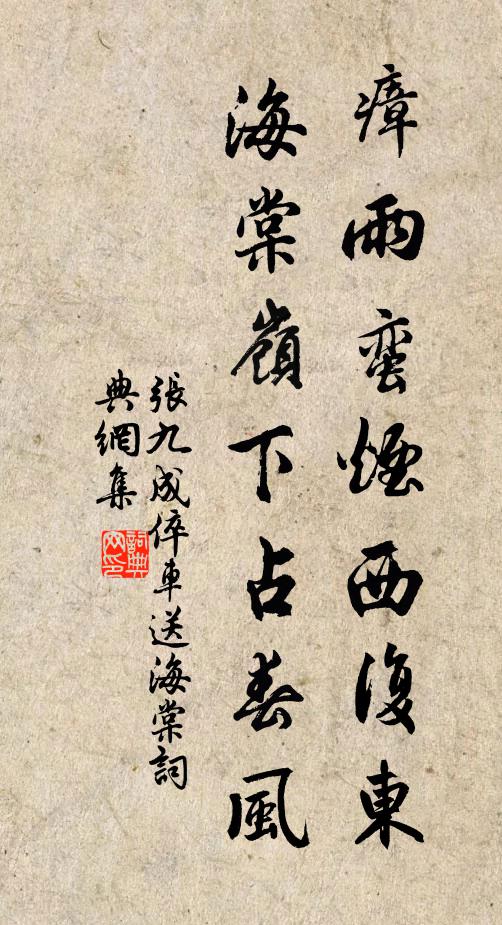 瘴雨蛮煙西復東
海棠嶺下占春風
張九成倅車送海棠詞
典網集
詞典网印